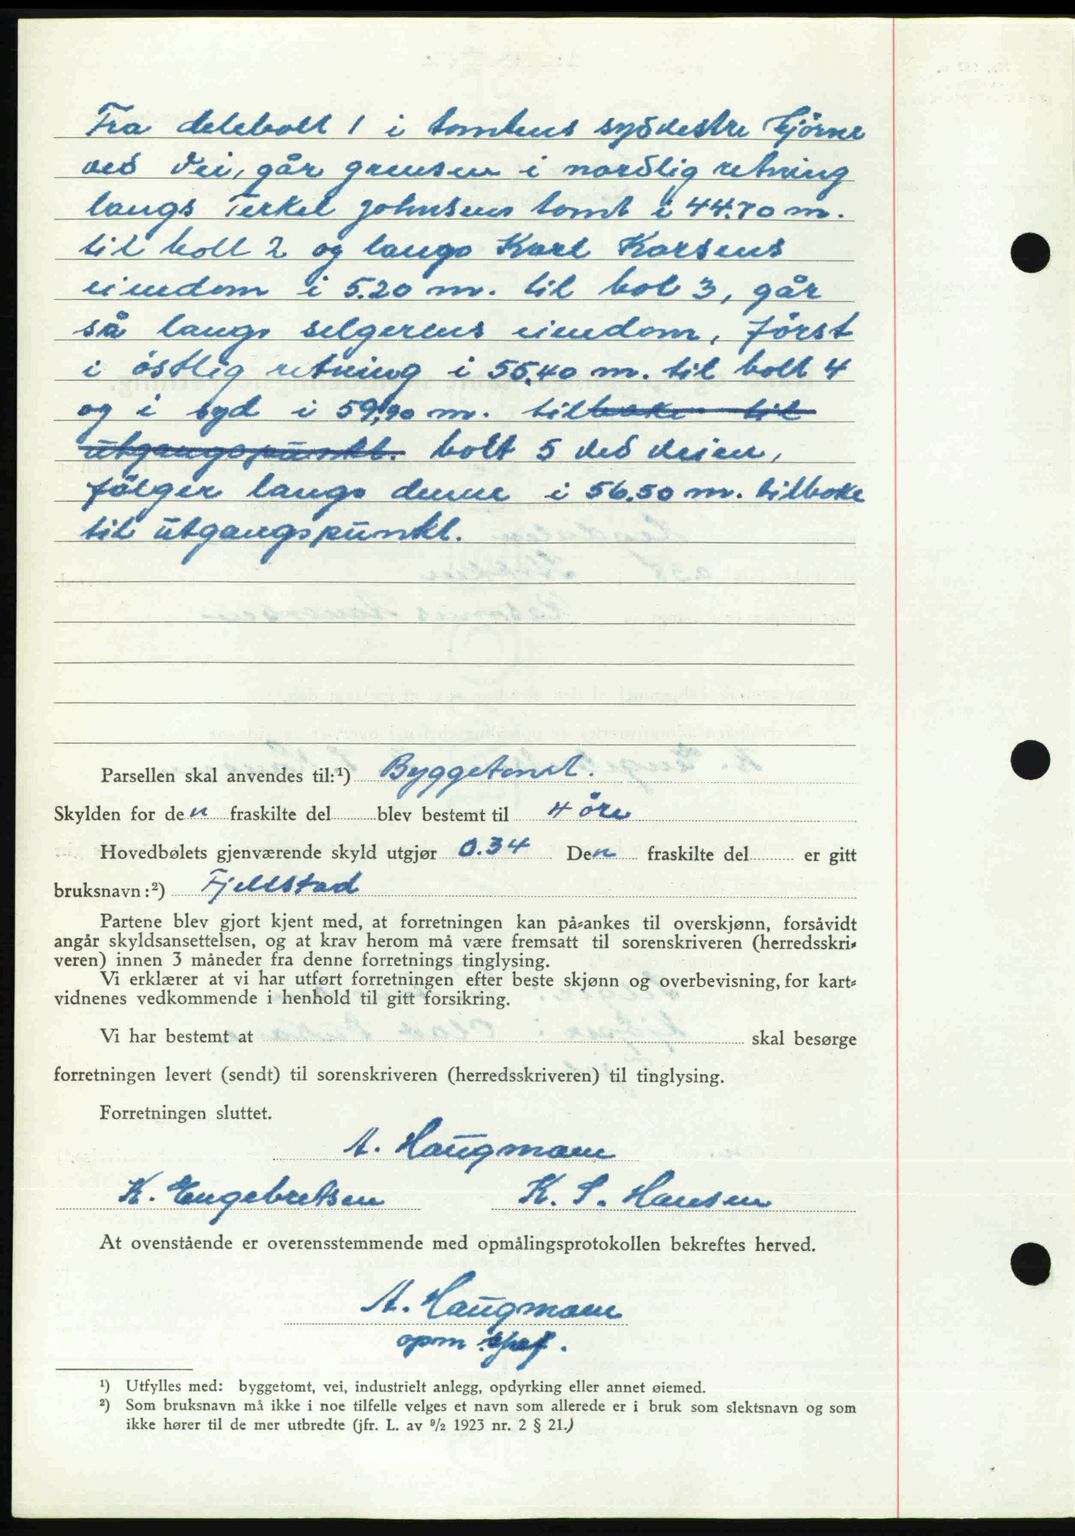 Fra delebolt 1 i tomtens sydvestre hjörne
ved vei, går grensen i nordlig retning
langs Terkel Johnsens tomt i 44.70 m.
til bolt 2 og langs Karl Karsens
eiendom i 5.20 m. til bol 3, går
så langs selgerens eiendom, först
i östlig retning i 55,40 m. til bolt 4
og i syd i 59,90 m. tilbake til
utgangspunkt. bolt 5 ved veien,
fölger langs denne i 56.50 m. tilbake
til utgangspunkt.
Parsellen skal anvendes til:¹) Byggetomt.
Skylden for den fraskilte del blev bestemt til 4 öre
Hovedbølets gjenværende skyld utgjør 0.34 Den fraskilte del er gitt
bruksnavn:²) Fjellstad
Partene blev gjort kjent med, at forretningen kan på-ankes til overskjønn, forsåvidt
angår skyldsansettelsen, og at krav herom må være fremsatt til sorenskriveren (herredsskri-
veren) innen 3 måneder fra denne forretnings tinglysing.
Vi erklærer at vi har utført forretningen efter beste skjønn og overbevisning, for kart-
vidnenes vedkommende i henhold til gitt forsikring.
Vi har bestemt at skal besørge
forretningen levert (sendt) til sorenskriveren (herredsskriveren) til tinglysing.
Forretningen sluttet.
A. Haugmann
K. Engebretsen K. S. Hansen
At ovenstående er overensstemmende med opmålingsprotokollen bekreftes herved.
A. Haugmann
opm
¹) Utfylles med: byggetomt, vei, industrielt anlegg, opdyrking eller annet øiemed.
²) Som bruksnavn må ikke i noe tilfelle velges et navn som allerede er i bruk som slektsnavn og som
ikke hører til de mer utbredte (jfr. L. av ⁹/₂ 1923 nr. 2 § 21.)